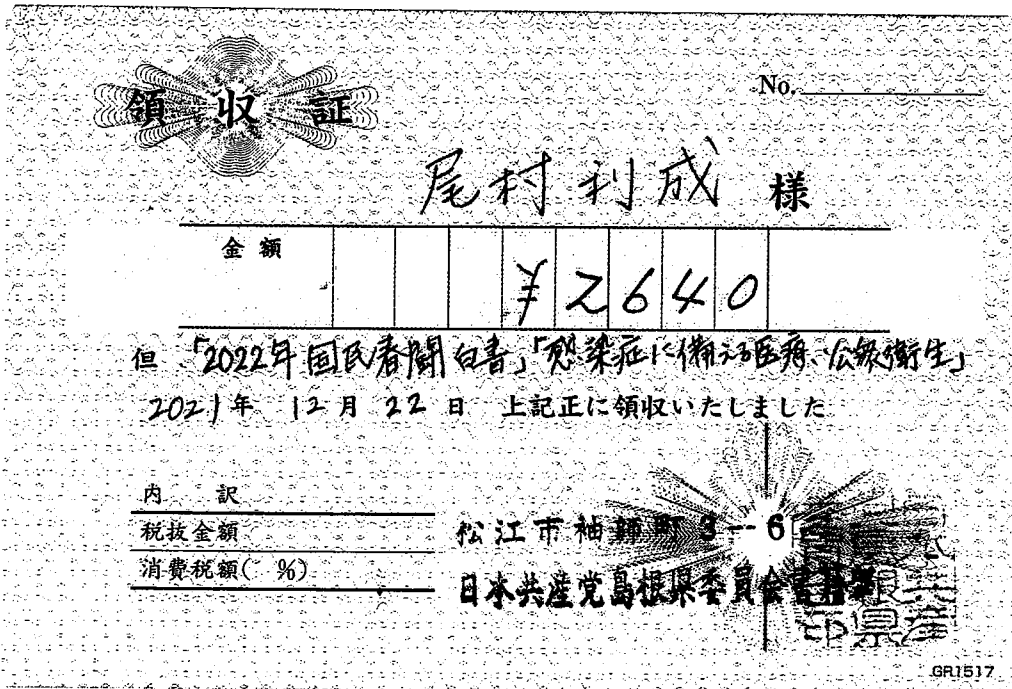 領収証
No.
尾村利成 様
金額 ¥2640
但 「2022年国民春闘白書」「感染症に備える医療、公衆衛生」
2021年 12月 22日 上記正に領収いたしました
内 訳
税抜金額
消費税額( %)
松江市袖師町3-6
日本共産党島根県委員会書籍部
GR1517